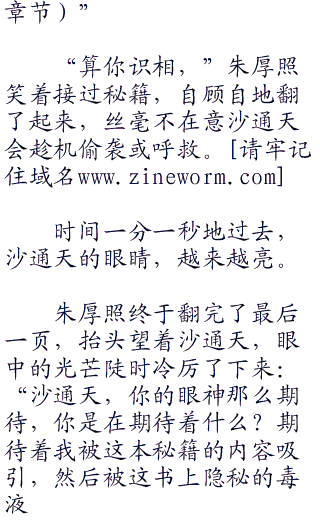 章节）”
“算你识相，”朱厚照
笑着接过秘籍，自顾自地翻
了起来，丝毫不在意沙通天
会趁机偷袭或呼救。[请牢记
住域名www.zineworm.com]
时间一分一秒地过去，
沙通天的眼睛，越来越亮。
朱厚照终于翻完了最后
一页，抬头望着沙通天，眼
中的光芒陡时冷厉了下来：
“沙通天，你的眼神那么期
待，你是在期待着什么？期
待着我被这本秘籍的内容吸
引，然后被这书上隐秘的毒
液